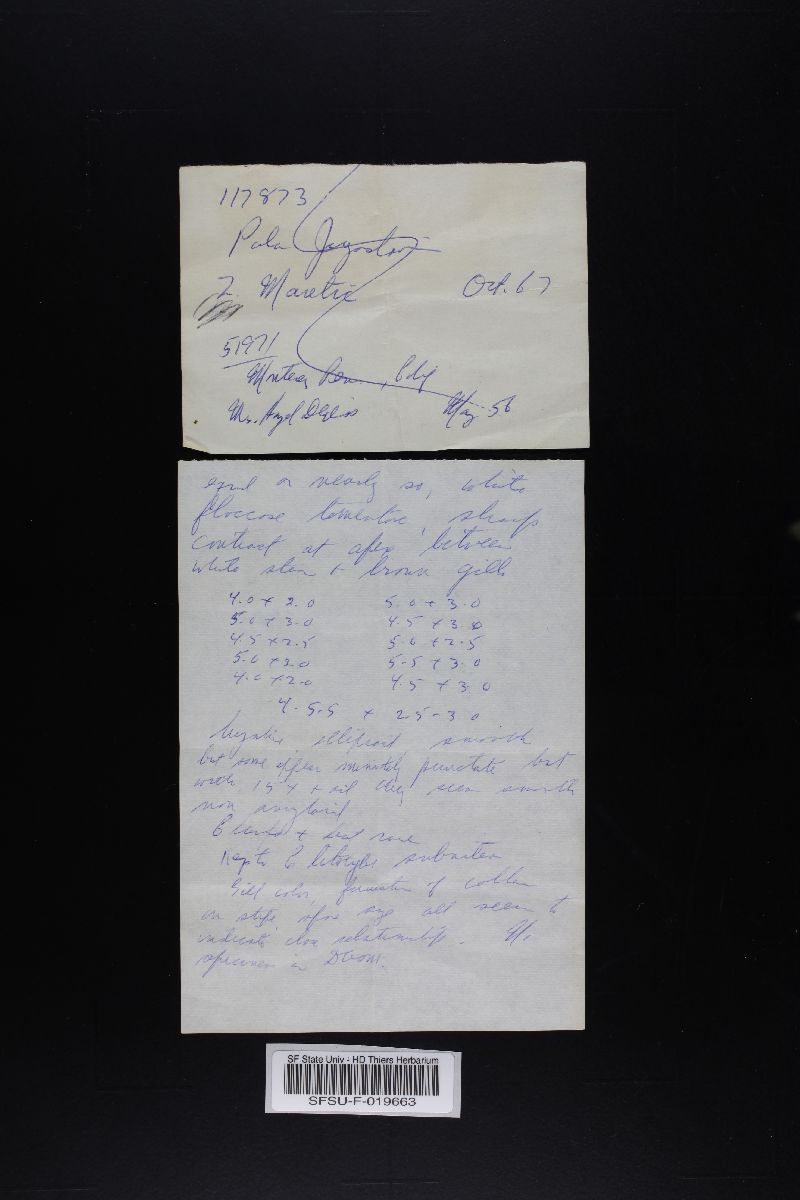 117873
Pula Jugoslavi
Z. Maretic Oct. 67
51971
Monterey Penn., Calif
Mrs. May 56
equal or nearly so, white
floccose tomentose, sharp
contrast at apex between
white stem + brown gills
4.0 + 2.0 5.0 + 3.0
5.0 + 3.0 4.5 + 3.0
4.5 + 2.5 5.0 + 2.5
5.0 + 2.0 5.5 + 3.0
4.0 + 2.0 4.5 + 3.0
4-5.5 + 2.5-3.0
hyaline ellipsoid smooth
but some appear minutely punctate but
with oil they seem smooth
non amyloid
rare
Clitocybe
Gill color, formation of collar
on stipe spore size all seem to
indicate close relationship. No
specimen in
SF State Univ - HD Thiers Herbarium
SFSU-F-019663